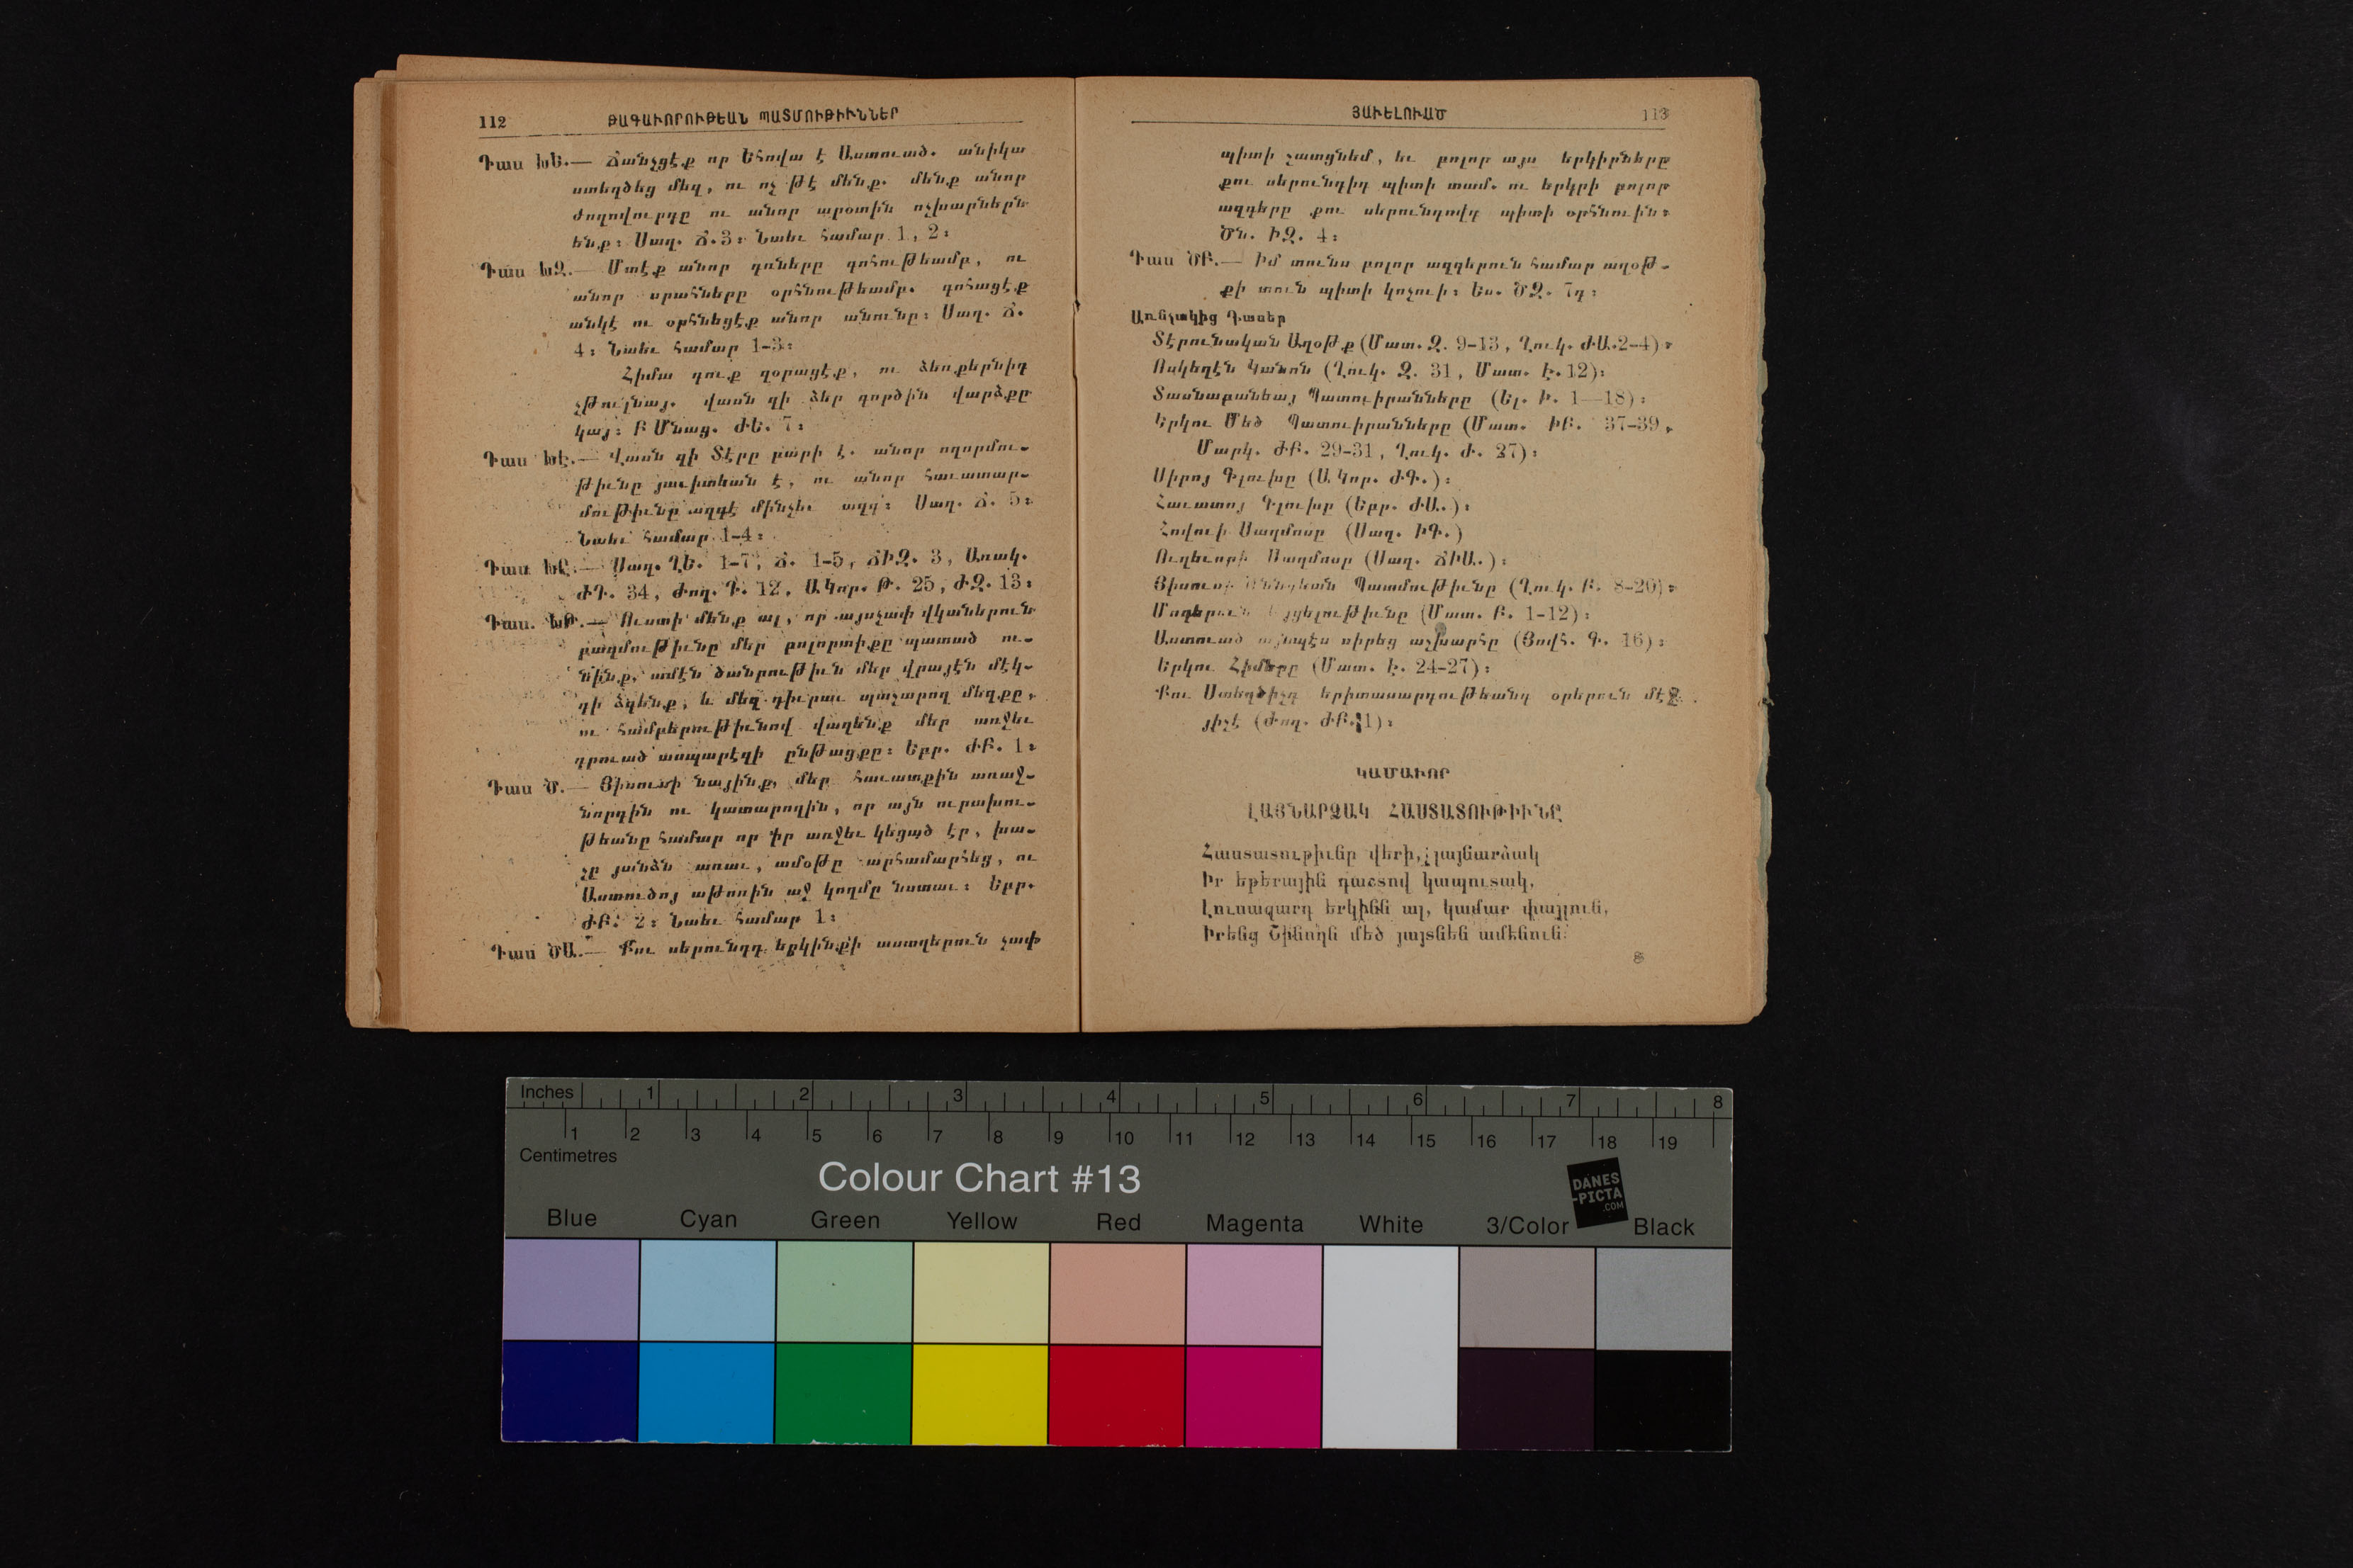 112 ԹԱԳԱՒՈՐՈՒԹԵԱՆ ՊԱՏՄՈՒԹԻՒՆՆԵՐ
Դաս ԽԵ.— Ճանչցէք որ Եհովա է Աստուած. անիկա
ստեղծեց մեզ, ու ոչ թէ մենք. մենք անոր
ժողովուրդը ու անոր արօտին ոչխարներն
ենք։ Սաղ. Ճ.3։ Նաեւ համար 1, 2։
Դաս ԽԶ.— Մտէք անոր դռները գոհութեամբ, ու
անոր սրահները օրհնութեամբ. գոհացէք
անկէ ու օրհնեցէք անոր անունը։ Սաղ. Ճ.
4։ Նաեւ համար 1-3։
Հիմա դուք զօրացէք, ու ձեռքերնիդ
չթուլնայ. վասն զի ձեր գործին վարձքը
կայ։ Բ Մնաց. ԺԵ. 7։
Դաս ԽԷ.— Վասն զի Տէրը բարի է. անոր ողորմու-
թիւնը յաւիտեան է, ու անոր հաւատար-
մութիւնը ազգէ մինչեւ ազգ։ Սաղ. Ճ. 5։
Նաեւ համար 1-4։
Դաս ԽԸ.— Սաղ. ՂԵ. 1-7, Ճ. 1-5, ՃԻԶ. 3, Առակ.
ԺԴ. 34, Ժող. Դ. 12, Ա Կոր. Թ. 25, ԺԶ. 13։
Դաս. ԽԹ.— Ուստի մենք ալ, որ այսչափ վկաներուն
բազմութիւնը մեր բոլորտիքը պատած ու-
նինք, ամէն ծանրութիւն մեր վրայէն մէկ-
դի ձգենք, և մեզ դիւրաւ պաշարող մեղքը,
ու համբերութիւնով վազենք մեր առջեւ
դրուած ասպարէզի ընթացքը։ Եբր. ԺԲ. 1։
Դաս Ծ.— Յիսուսի նայինք, մեր հաւատքին առաջ-
նորդին ու կատարողին, որ այն ուրախու-
թեանը համար որ իր առջեւ կեցած էր, խա-
չը յանձն առաւ, ամօթը արհամարհեց, ու
Աստուծոյ աթոռին աջ կողմը նստաւ։ Եբր.
ԺԲ. 2։ Նաեւ համար 1։
Դաս ԾԱ.— Քու սերունդդ երկինքի աստղերուն չափ
ՅԱՒԵԼՈՒԱԾ 113
պիտի շատցնեմ, եւ բոլոր այս երկիրները
քու սերունդիդ պիտի տամ. ու երկրի բոլոր
ազգերը քու սերունդովդ պիտի օրհնուին։
Ծն. ԻԶ. 4։
Դաս ԾԲ.— Իմ տունս բոլոր ազգերուն համար աղօթ-
քի տուն պիտի կոչուի։ Ես. ԾԶ. 7դ։
Առնչակից Դասեր
Տէրունական Աղօթք (Մատ. Զ. 9-13, Ղուկ. ԺԱ.2-4)։
Ոսկեղէն Կանոն (Ղուկ. Զ. 31, Մատ. Է. 12)։
Տասնաբանեայ Պատուիրանները (Ել. Ի. 1—18)։
Երկու Մեծ Պատուիրանները (Մատ. ԻԲ. 37-39,
Մարկ. ԺԲ. 29-31, Ղուկ. Ժ. 27)։
Սիրոյ Գլուխը (Ա Կոր. ԺԳ.)։
Հաւատոյ Գլուխը (Եբր. ԺԱ.)։
Հովուի Սաղմոսը (Սաղ. ԻԳ.)
Ուղեւորի Սաղմոսը (Սաղ. ՃԻԱ.)։
Յիսուսի Ծննդեան Պատմութիւնը (Ղուկ. Բ. 8-20)։
Մոգերուն Այցելութիւնը (Մատ. Բ. 1-12)։
Աստուած այնպէս սիրեց աշխարհը (Յովհ. Գ. 16)։
Երկու Հիմերը (Մատ. Է. 24-27)։
Քու Ստեղծիչդ երիտասարդութեանդ օրերուն մէջ
յիշէ (Ժող. ԺԲ. 1)։
ԿԱՄԱՒՈՐ
ԼԱՅՆԱՐՁԱԿ ՀԱՍՏԱՏՈՒԹԻՒՆԸ
Հաստատութիւնը վերի, լայնարձակ
Իր եթերային դաշտով կապուտակ,
Լուսազարդ երկինքն ալ, կամար փայլուն,
Իրենց Շինողն մեծ յայտնեն ամենուն։
8
Inches 1 2 3 4 5 6 7 8
1 2 3 4 5 6 7 8 9 10 11 12 13 14 15 16 17 18 19
Centimetres
Colour Chart #13
DANES
-PICTA
.COM
Blue Cyan Green Yellow Red Magenta White 3/Color Black